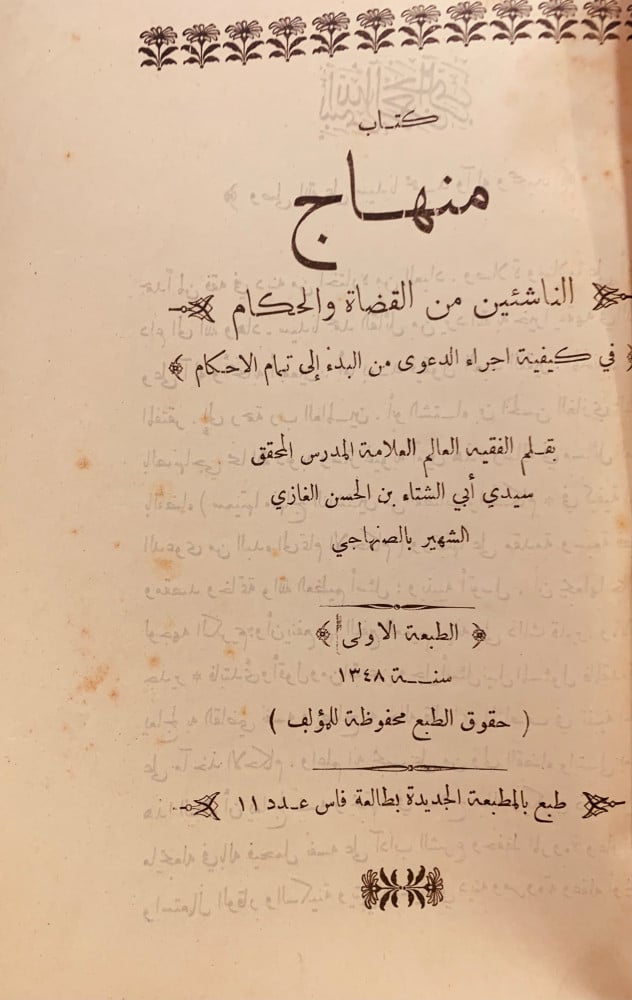 كتاب
منهاج
الناشئين من القضاة والحكام
﴿ في كيفية اجراء الدعوى من البدء إلى تمام الاحكام ﴾
بقلم الفقيه العالم العلامة المدرس المحقق
سيدي أبي الشتاء بن الحسن الغازي
الشهير بالصنهاجي
﴿ الطبعة الاولى ﴾
سنة ١٣٤٨
( حقوق الطبع محفوظة للمؤلف )
طبع بالمطبعة الجديدة بطالعة فاس عدد ١١